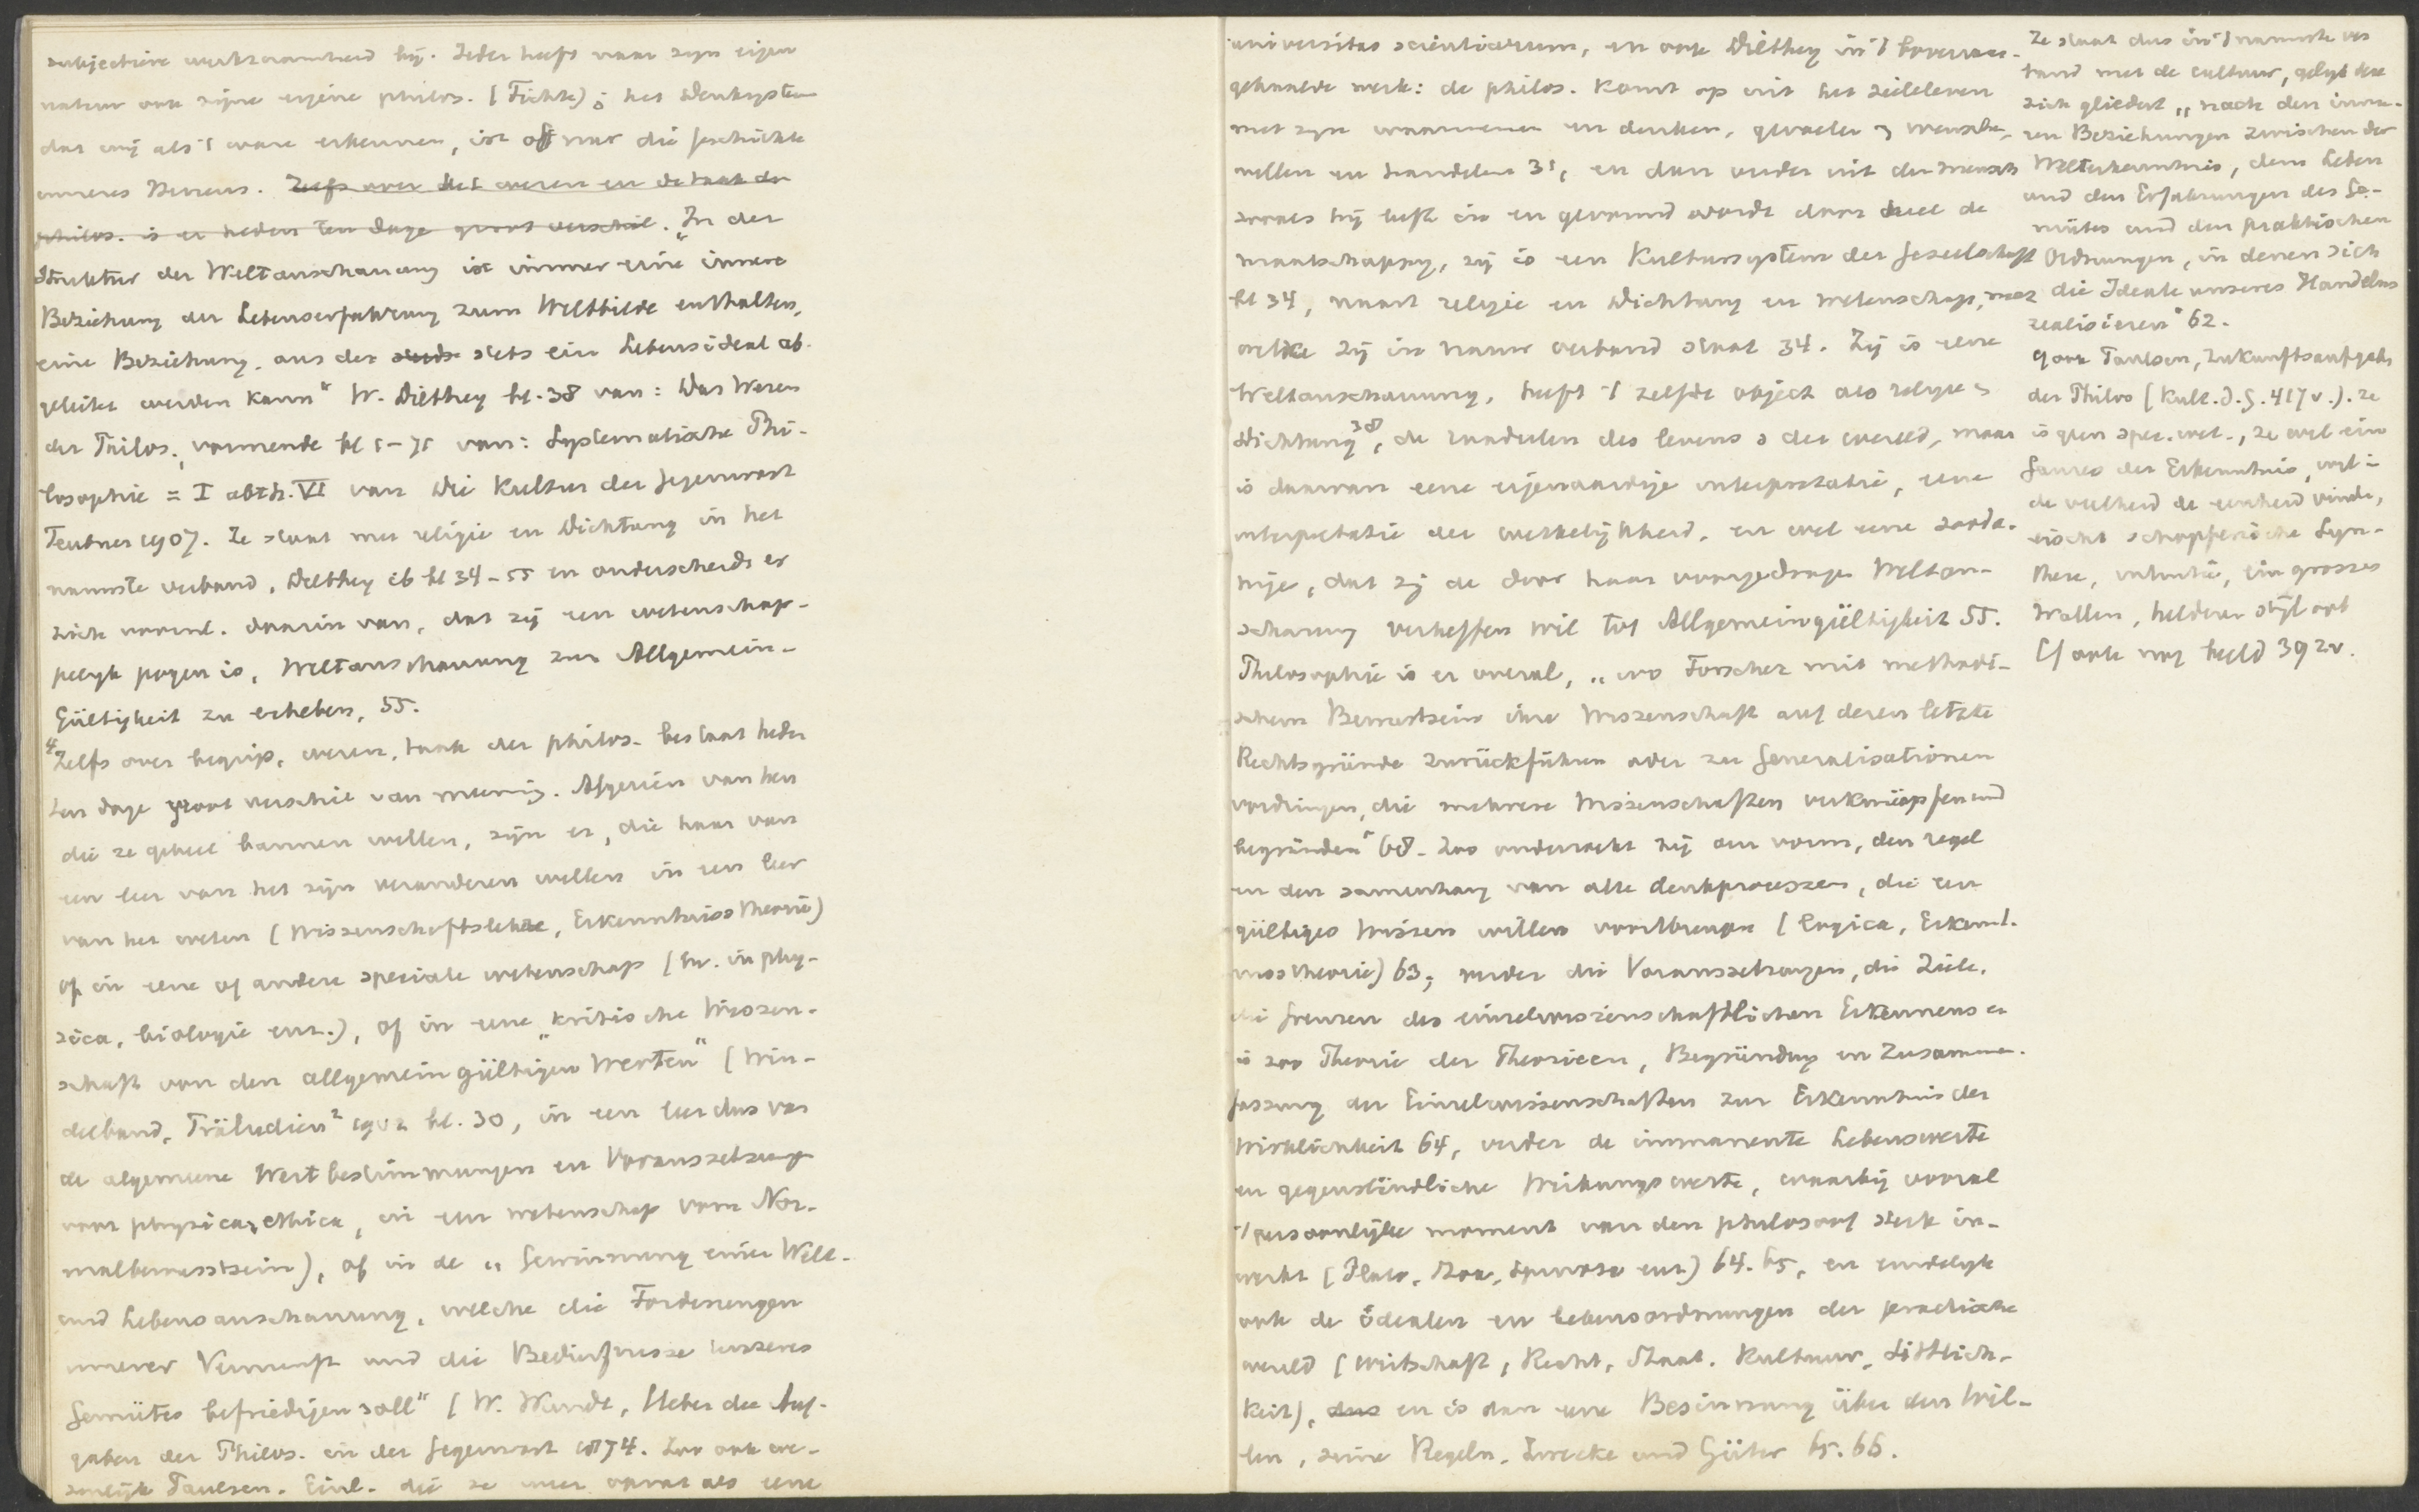 subjectieve werkzaamheid bij. Ieder heeft naar zijn eigen
natuur ook zijne eigene philos. (Fichte); het Denksystem
dat wij als 't ware erkennen, ist oft nur die Geschichte
unseres Herzens. Zelfs over het wezen en de taak der
philos. is er heden ten dage groot verschil. „In der
Struktur der Weltanschauung ist immer eine innere
Beziehung der Lebenserfahrung zum Weltbilde enthalten,
eine Beziehung, aus der stets ein Lebensideal ab-
geleitet werden kann“ W. Dilthey bl. 38 van: Das Wesen
der Philos., vormende bl 1-71 van: Systematische Phi-
losophie = I abth. VI van Die Kultur der Gegenwart
Teubner 1907. Ze staat met religie en Dichtung in het
nauwste verband, Dilthey ib bl 34-55 en onderscheidt er
zich vooral. daarin van, dat zij een wetenschap-
pelijk pogen is, Weltanschauung zur Allgemein-
gültigkeit zu erheben, 55.
4 Zelfs over begrip, wezen, taak der philos. bestaat heden
ten dage groot verschil van mening. Afgezien van hen
die ze geheel bannen willen, zijn er, die haar van
een leer van het zijn veranderen willen in een leer
van het weten (Wissenschaftslehre, Erkenntnisstheorie)
of in eene of andere speciale wetenschap (bv. in phy-
sica, biologie enz.), of in eene „kritische Wissen-
schaft von den allgemeingültigen Werten“ (Win-
delband, Präludien² 1902 bl. 30, in een leer dus van
de algemeene Wertbestimmungen en Voraussetzungen
voor physica, ethica, in een wetenschap vom Nor-
malbewusstsein), of in de „Gewinnung einer Welt-
und Lebensanschauung, welche die Forderungen
unserer Vernunft und die Bedürfnisse unseres
Gemütes befriedigen soll“ (W. Wundt, Ueber die Auf-
gaben der Philos. in der Gegenwart 1874. Zoo ook we-
zenlijk Paulsen. Einl. die ze weer opvat als eene
universitas scientiarum, en ook Dilthey in 't bovenaan-
gehaalde werk: de philos. komt op uit het zieleleven
met zijn waarnemen en denken, gevoelen en wenschen,
willen en handelen 31, en dan verder uit den mensch
zooals hij leeft in en gevormd wordt door heel de
maatschappij, zij is een Kultursystem der Gesellschaft
bl 34, naast religie en Dichtung en wetenschap, met
welke zij in nauw verband staat 34. Zij is eene
Weltanschauung, heeft 't zelfde object als religie en
Dichtung 38, de raadselen des levens en der wereld, maar
is daarvan eene eigenaardige interpretatie, eene
interpretatie der werkelijkheid, en wel eene zoda-
nige, dat zij de door haar voorgedragen Weltan-
schauung verheffen wil tot Allgemeingültigkeit 55.
Philosophie is er overal, „wo Forscher mit methodi-
schem Bewustsein ihre Wissenschaft auf deren letzte
Rechtsgründe zurückführen oder zu Generalisationen
vordringen, die mehrere Wissenschaften verknüpfen und
begründen“ 68. Zoo onderzoekt zij den vorm, den regel
en den samenhang van alle denkprocessen, die een
gültiges Wissen willen voortbrengen (logica, Erkennt-
nisstheorie) 63; verder die Voraussetzungen, die Ziele,
die Grenzen des einzelwissenschaftlichen Erkennens en
is zoo Theorie der Theorieen, Begründung en Zusammen-
fassung der Einzelwissenschaften zur Erkenntnis der
Wirklichkeit 64, verder de immanente Lebenswerte
en gegenständliche Wirkungswerte, waarbij vooral
't persoonlijke moment van den philosoof sterk in-
werkt (Plato, Stoa, Spinoza enz.) 64. 65, en eindelijk
ook de idealen en levensordnungen der practische
wereld (Wirtschaft, Recht, Staat. Kultuur, Sittlich-
keit), dus en is dan eene Besinnung über den Wil-
len, seine Regeln, Zwecke und Güter 65. 66.
Ze staat dus in 't nauwste ver
band met de cultuur, gelijk deze
zich gliedert „nach den inne-
ren Beziehungen zwischen der
Welterkenntnis, dem Leben
und den Erfahrungen des Ge-
mütes und den praktischen
Ordnungen, in denen sich
die Ideale unseres Handelns
realisieren“ 62.
9 ook Paulsen, Zukunftsaufgaben
der Philos (Kult. d. G. 417 v.). ze
is geen spec. wet., ze wil ein
Ganzes der Erkenntnis, wil in
de veelheid de eenheid vinden,
eischt schöpferische Syn-
these, intuitie, ein grosses
Wollen, helderen stijl ook
Cf ook nog 392 v.